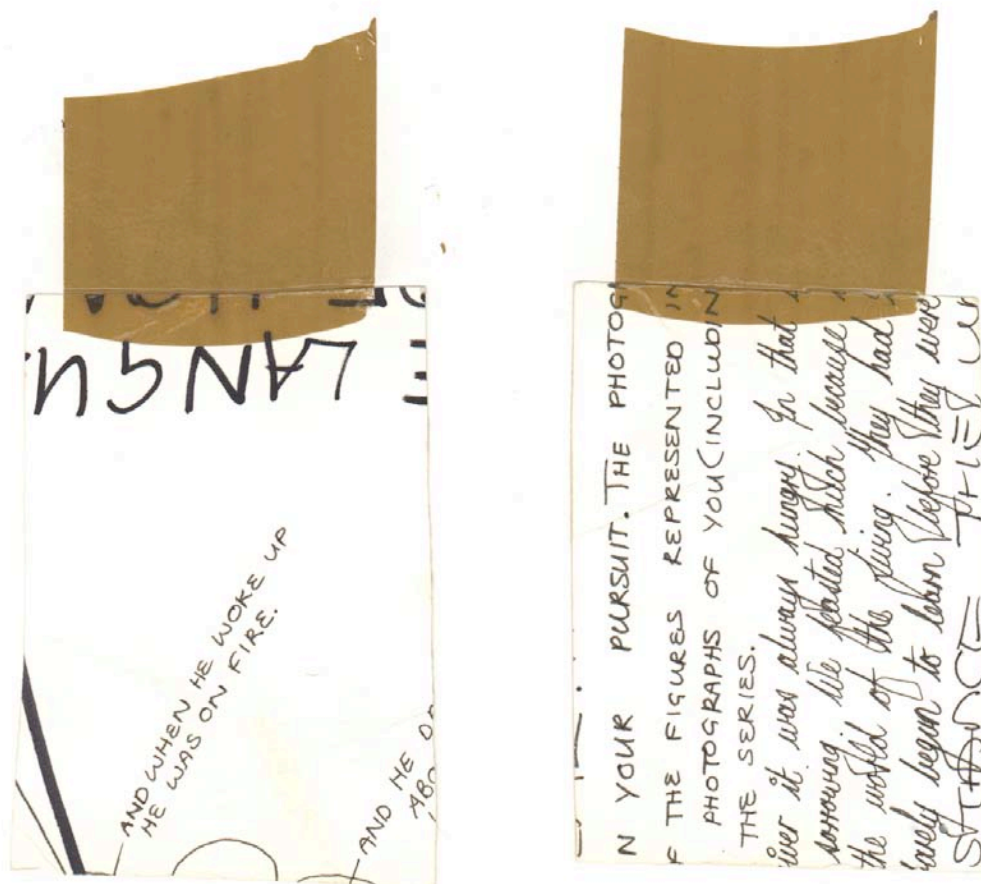 LANGU
AND WHEN HE WOKE UP
HE WAS ON FIRE.
AND HE
N YOUR PURSUIT. THE PHOTOG
F THE FIGURES REPRESENTED IN
PHOTOGRAPHS OF YOU (INCLUDIN
THE SERIES.
iver it was always hungry. In that
sorrowing We feasted much because
the world of the living. they had
barely begun to learn before they were
THEY